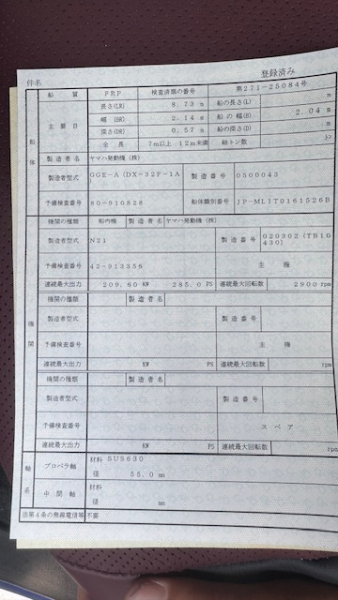 件名
登録済み
船質 FRP 検査済票の番号 第271-25084号
船体
主要目
長さ(LR) 8.73m 船の長さ(L) m
幅(BM) 2.14m 船の幅(B) 2.04m
深さ(DM) 0.57m 船の深さ(D) m
全長 7m以上 12m未満 総トン数
製造者名 ヤマハ発動機(株)
製造者型式 GGE-A(DX-32F-1A) 製造番号 0500043
予備検査番号 80-910828 船体識別番号 JP-ML1T0161526B
機関
機関の種類 船内機 製造者名 ヤマハ発動機(株)
製造者型式 N21 製造番号 020302(TB10430)
予備検査番号 42-913256 主機
連続最大出力 209.60 KW 285.0 PS 連続最大回転数 2900 rpm
機関の種類 製造者名
製造者型式 製造番号
予備検査番号 主機
連続最大出力 KW PS 連続最大回転数 rpm
機関の種類 製造者名
製造者型式 製造番号
予備検査番号 スペア
連続最大出力 KW PS 連続最大回転数 rpm
軸系
プロペラ軸 材料 SUS630
径 55.0 mm
中間軸 材料
径 mm
法第4条の無線電信等 不要